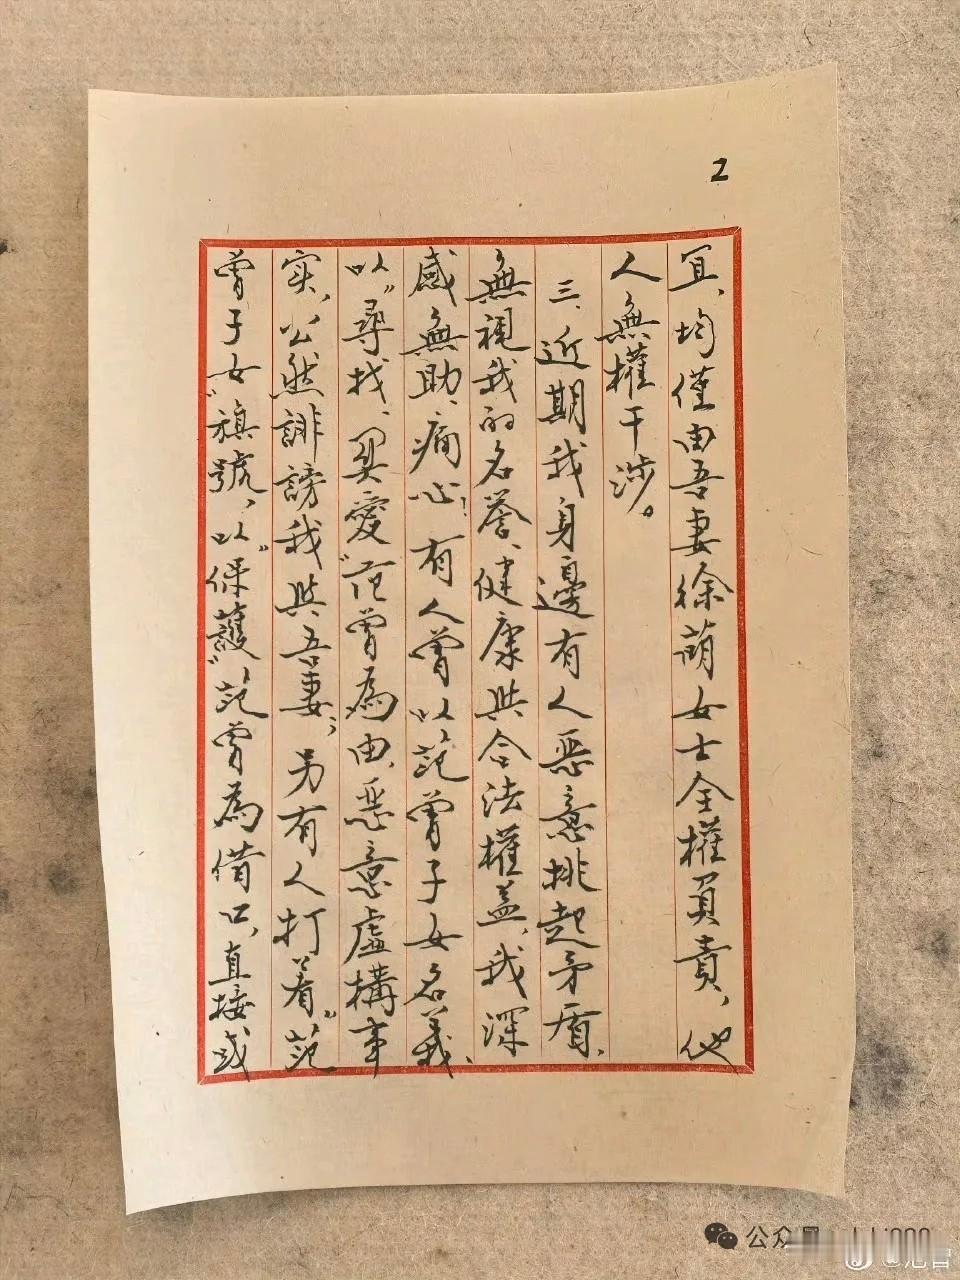 2
宜、均僅由吾妻徐萌女士全權負責，他
人無權干涉。
三、近期我身邊有人恶意挑起矛盾、
無視我的名誉、健康與合法權益，我深
感無助、痛心！有人曾以范曾子女名義、
以“尋找、关愛”范曾為由，恶意虛構事
实，公然誹謗我與吾妻；另有人打着“范
曾子女”旗號，以“保護”范曾為借口，直接或
公众号